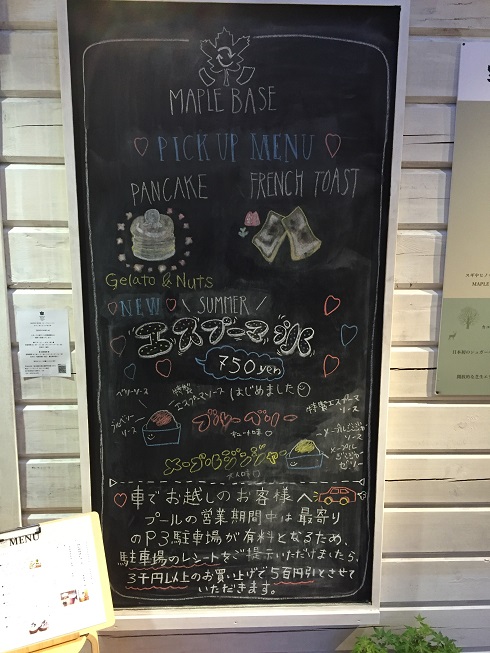 MAPLE BASE
PICK UP MENU
PANCAKE
FRENCH TOAST
Gelato & Nuts
NEW
SUMMER
エスプーマ氷
750yen
はじめました
ベリーソース
特製
エスプーマソース
ブルーベリー
ソース
ブルーベリー
特製エスプーマ
ソース
メープルジンジャー
車でお越しのお客様へ
プールの営業期間中は最寄り
のP3駐車場が有料となるため、
駐車場のレシートをご提示いただけましたら、
3千円以上のお買い上げで5百円引とさせて
いただきます。
MENU